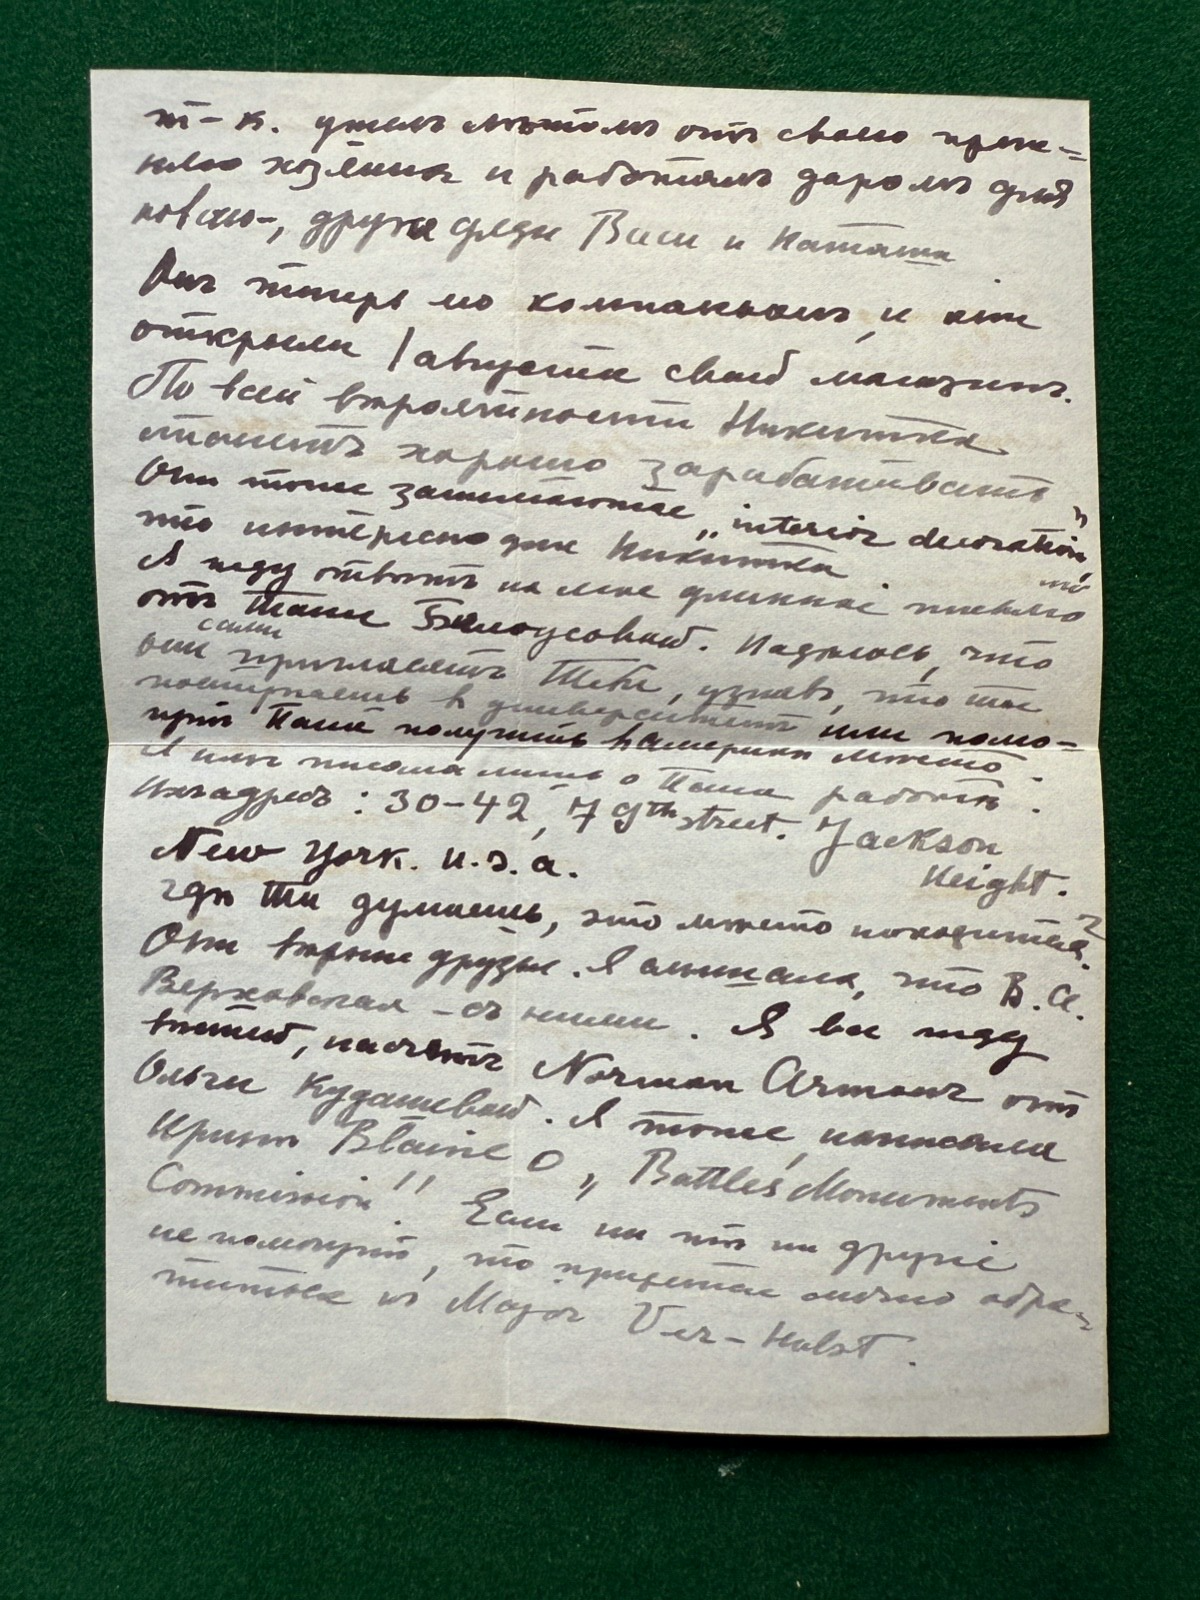 т-к. ушелъ лѣтомъ отъ своего преж-
няго хозяина и работалъ даромъ для
новаго-, друга дяди Васи и Наташи
Онъ теперь его компаньонъ, и они
открыли 1 августа свой магазинъ.
По всей вѣроятности Никитка
станетъ хорошо зарабатывать
Они тоже занимаются „interior decoration"
что интересно для Никитки.
Я жду отвѣтъ на мое длинное письмо
отъ Тани Бѣлоусовой. Надѣюсь, что
они сами пригласятъ Тебя, узнавъ, что ты
поступаешь в университетъ или помо-
гутъ Пашѣ получить в Америкѣ мѣсто.
Я имъ писала лишь о Пашѣ работѣ.
Ихъ адресъ: 30-42, 79th street. Jackson
Height.
New York. U.S.A.
гдѣ Ты думаешь, это мѣсто находится?
Они вѣрные друзья. Я слышала, что В. А.
Верховская - съ ними. Я все жду
вѣстей, насчетъ Norman Armour отъ
Ольги Кудашевой. Я тоже написала
Иринѣ Blaine о „Battles Monuments
Commission"! Если ни тѣ ни другіе
не помогутъ, то придется лично обра-
титься къ Major Ver-Hulst.